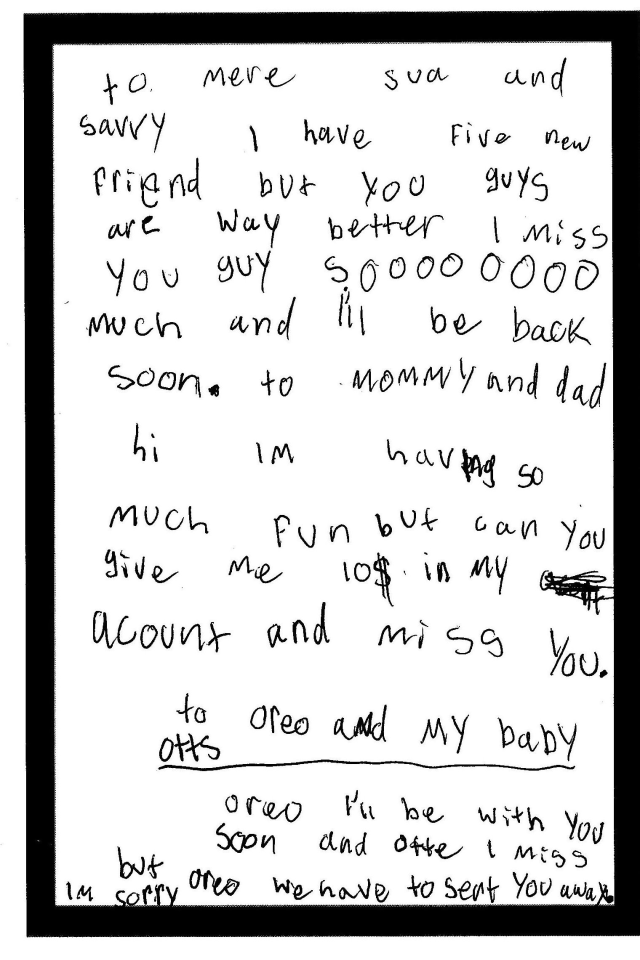 to mere sua and
savvy I have Five new
Friend but you guys
are way better I miss
you guy S,00000 0000
much and I'll be back
soon. to MOMMY and dad
hi IM having so
much Fun but can you
give me 10$ in my
acount and miss you.
to oreo and MY baby
otts
oreo I'll be with you
soon and otte I miss
but
IM sorry oreo we have to sent you away.